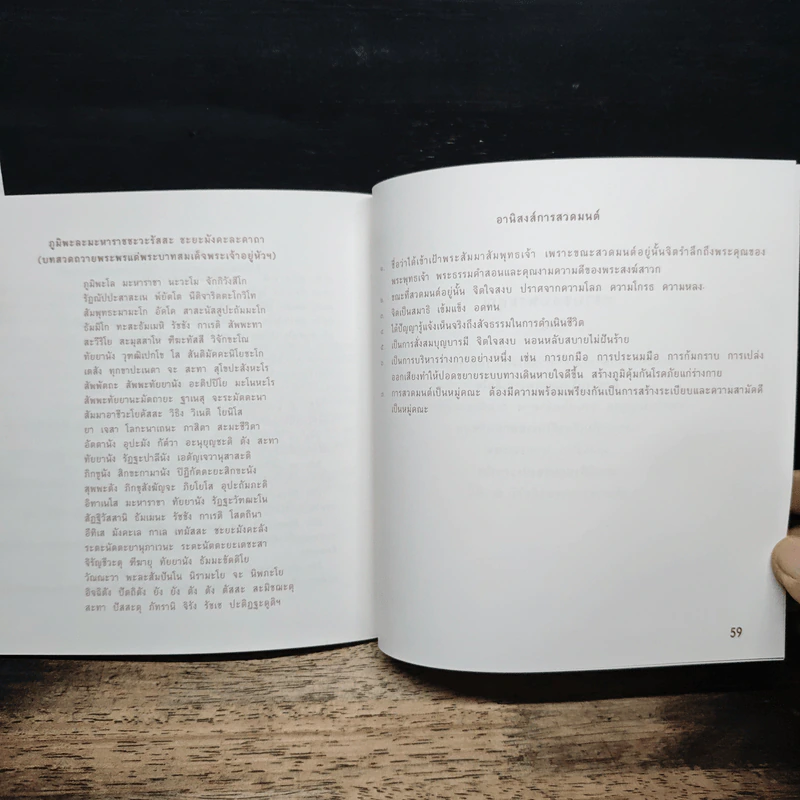 ภูมิพะละมะหาราชชะวะรัสสะ ชะยะมังคะละคาถา
(บทสวดถวายพระพรแด่พระบาทสมเด็จพระเจ้าอยู่หัวฯ)
ภูมิพะโล มะหาราชา นะวะโม จักกิวังสิโก
รัฏฐัปปะสาสะเน พ๎ยัตโต นีติจาริตตะโกวิโท
สัมพุทธะมามะโก อัคโค สาสะนัสสูปะถัมมะโก
ธัมมิโก ทะสะธัมเมหิ รัชชัง กาเรติ สัพพะทา
สะวีริโย สะมุสสาโห ทีฆะทัสสี วิจักขะโณ
ทัยยานัง วุฑฒิเปกโข โส สันติมัคคะนิโยชะโก
เตสัง ทุกขาปะเนตา จะ สะทา สุโขปะสังหะโร
สัพพัตถะ สัพพะทัยยานัง อะติปปิโย มะโนหะโร
สัพพะทัยยานะมัตถายะ ฐาเนสุ จะระมัตตะนา
สัมมาอาชีวะโยคัสสะ วิธิง วิเนติ โยนิโส
ยา เจสา โลกะนาเถนะ ภาสิตา สะมะชีวิตา
อัตตานัง อุปะมัง กัต๎วา อะนุยุญชะติ ตัง สะทา
ทัยยานัง รัฏฐะปาลีนัง เอตัญเจวานุสาสะติ
ภิกขูนัง สิกขะกามานัง ปิฎกัตตะยะสิกขะนัง
สุพพะตัง ภิกขุสังฆัญจะ ภิยโยโส อุปะถัมภะติ
อิทาเนโส มะหาราชา ทัยยานัง รัฏฐะวัฑฒะโน
สัฏฐีวัสสานิ ธัมเมนะ รัชชัง กาเรติ โสตถินา
อีทิเส มังคะเล กาเล เทมัสสะ ชะยะมังคะลัง
ระตะนัตตะยานุภาเวนะ ระตะนัตตะยะเตชะสา
จิรัญชีวะตุ ทีฆายุ ทัยยานัง ธัมมะขัตติโย
วัณณะวา พะละสัมปันโน นิรามะโย จะ นิพภะโย
อิจฉิตัง ปัตถิตัง ยัง ยัง ตัง ตัง ตัสสะ สะมิชฌะตุ
สะทา ปัสสะตุ ภัทรานิ จิรัง รัชเช ปะติฏฐะตูติฯ
อานิสงส์การสวดมนต์
ชื่อว่าได้เข้าเฝ้าพระสัมมาสัมพุทธเจ้า เพราะขณะสวดมนต์อยู่นั้นจิตรำลึกถึงพระคุณของ
พระพุทธเจ้า พระธรรมคำสอนและคุณงามความดีของพระสงฆ์สาวก
ขณะที่สวดมนต์อยู่นั้น จิตใจสงบ ปราศจากความโลภ ความโกรธ ความหลง
จิตเป็นสมาธิ เข้มแข็ง อดทน
ได้ปัญญารู้แจ้งเห็นจริงถึงสัจธรรมในการดำเนินชีวิต
เป็นการสั่งสมบุญบารมี จิตใจสงบ นอนหลับสบายไม่ฝันร้าย
เป็นการบริหารร่างกายอย่างหนึ่ง เช่น การยกมือ การประนมมือ การก้มกราบ การเปล่ง
ออกเสียงทำให้ปอดขยายระบบทางเดินหายใจดีขึ้น สร้างภูมิคุ้มกันโรคภัยแก่ร่างกาย
การสวดมนต์เป็นหมู่คณะ ต้องมีความพร้อมเพรียงกันเป็นการสร้างระเบียบและความสามัคคี
เป็นหมู่คณะ
59